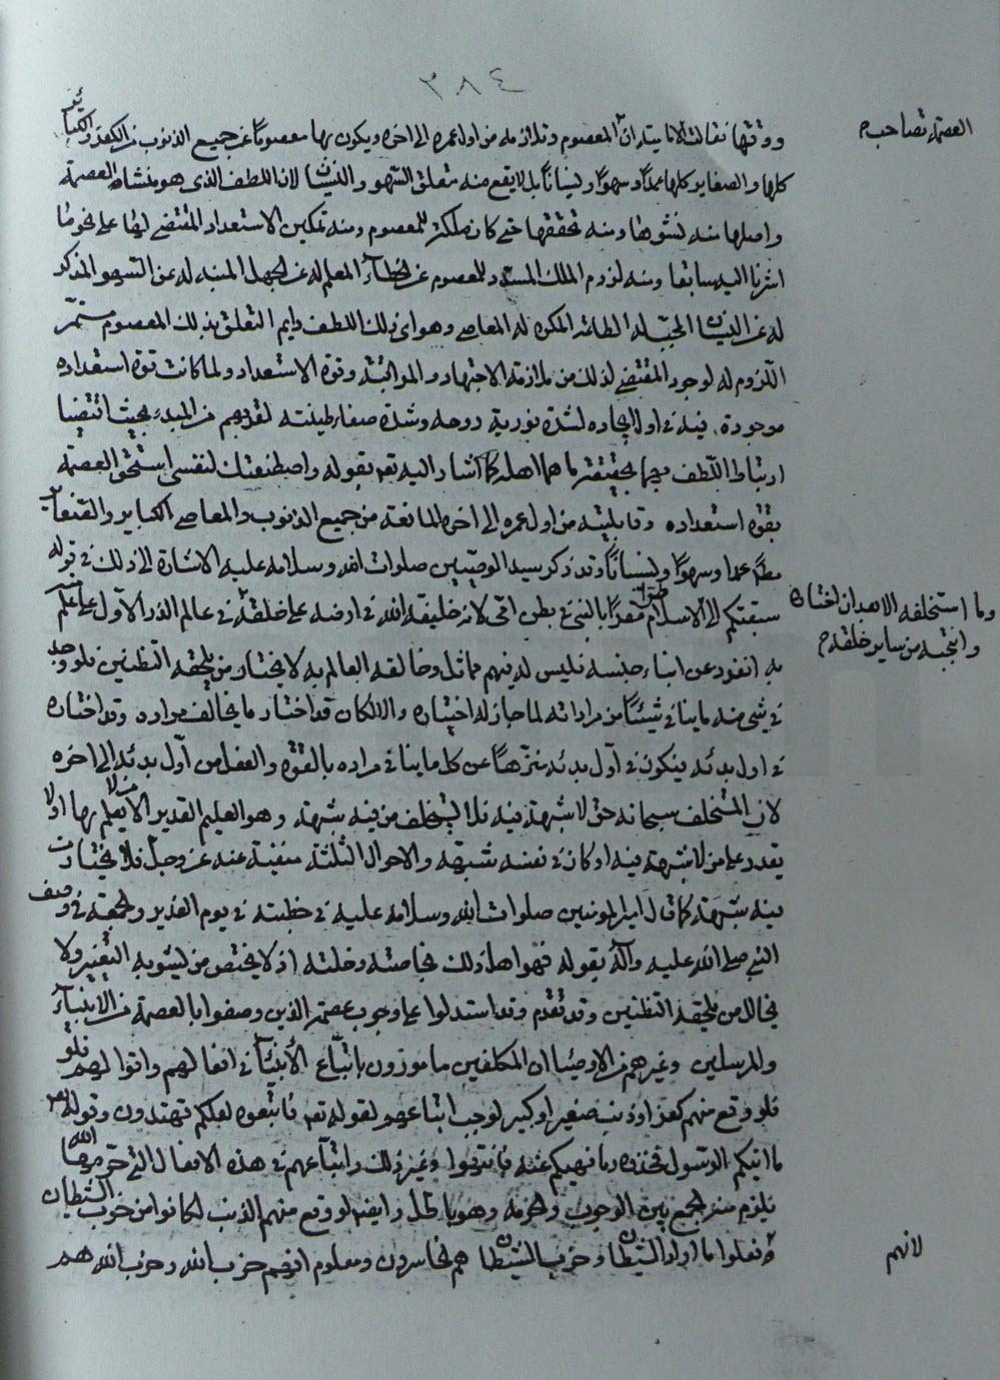 ٣٨٤
العصمة تصاحب
ووقتها فقالت الامامية ان المعصوم وتلازمه من اول عمره الى اخره ويكون بها معصوما عن جميع الذنوب من الكفر والكبائر
كلها والصغاير كلها عمدا وسهوا ونسيانا بل لا يقع منه متعلق السهو والنسيان لان اللطف الذى هو منشأ العصمة
واصلها منه نشوها ومنه تحققها حتى كانت ملكة للمعصوم ومنه تمكين الاستعداد المقتضى لها على نحو ما
اشرنا اليه سابقا ومنه لزوم الملك المسدد للمعصوم عن الخطأ المعلم له عن الجهل المنبه له عن السهو المذكر
له عن النسيان المحبب له الطاعة المكره له المعاصى وهو اى ذلك اللطف دايم التعلق بذلك المعصوم مستمر
اللزوم له لوجود المقتضى لذلك من ملازمة الاجتهاد والمواظبة وقوة الاستعداد ولما كانت قوة استعداده
موجودة فيه فى اول ايجاده لشدة نورية روحه وشدة صفاء طينته لقربهم من المبدء بحيث اقتضيا
ارتباط اللطف بهما بحقيقة ما هما اهله كما اشار اليه تعالى بقوله واصطنعتك لنفسى استحق العصمة
بقوة استعداده وقابليته من اول عمره الى اخره المانعة من جميع الذنوب والمعاصى الكباير والصغاير
مطلقا عمدا وسهوا ونسيانا وقد ذكر سيد الوصيين صلوات الله وسلامه عليه الاشارة الى ذلك فى قوله
سبقتكم الى الاسلام طرا مقرا بالنبى فى بطن امى لانه خليفة الله فى ارضه على خلقه فى عالم الذر الاول على علم
وما استخلفه الا بعد ان اختاره
وانتجبه من ساير خلقه
به انفرد عن ابناء جنسه فليس له فيهم مماثل وخالقه العالم به لا يختار من يلحقه التظنين فلو وجد
فى شىء منه ما ينافى شيئا من مراداته لما جاز له اختياره والا لكان قد اختار ما يخالف مراده وقد اختاره
فى اول بدئه فيكون فى اول بدئه منزها عن كل ما ينافى مراده بالقوة والفعل من اول بدئه الى اخره
لان المستخلف سبحانه حق لا شبهة فيه فلا يستخلف من فيه شبهة وهو العليم القدير الا يعلم بها اولا
يقدر على من لا شبهة فيه او كان فى نفسه شبهة والاحوال الثلثة منفية عنه عز وجل فلا يختار من
فيه شبهة كما قال امير المؤمنين صلوات الله وسلامه عليه فى خطبته فى يوم الغدير والجمعة فى وصف
النبى صلى الله عليه وآله بقوله فهو اهل ذلك بخاصته وخلته اذ لا يختص من يشوبه التغيير ولا
يخالل من يلحقه التظنين وقد تقدم وقد استدلوا على وجوب عصمة الذين وصفوا بالعصمة من الانبياء
والمرسلين وغيرهم من الاوصياء ان المكلفين مأمورون باتباع الأنبياء فى افعالهم واقوالهم
فلو وقع منهم كفر او ذنب صغير او كبير لوجب اتباعهم لقوله تعالى فاتبعوه لعلكم تهتدون وقوله
ما اتيكم الرسول فخذوه وما نهيكم عنه فانتهوا وغير ذلك واتباعهم فى هذه الافعال التى حرمها الله
فيلزم منه الجمع بين الوجوب والحرمة وهو باطل وايضا لو وقع منهم الذنب لكانوا من حزب الشيطان
لانهم
فعلوا ما اراد الشيطان وحزب الشيطان هم الخاسرون ومعلوم انهم حزب الله وحزب الله هم